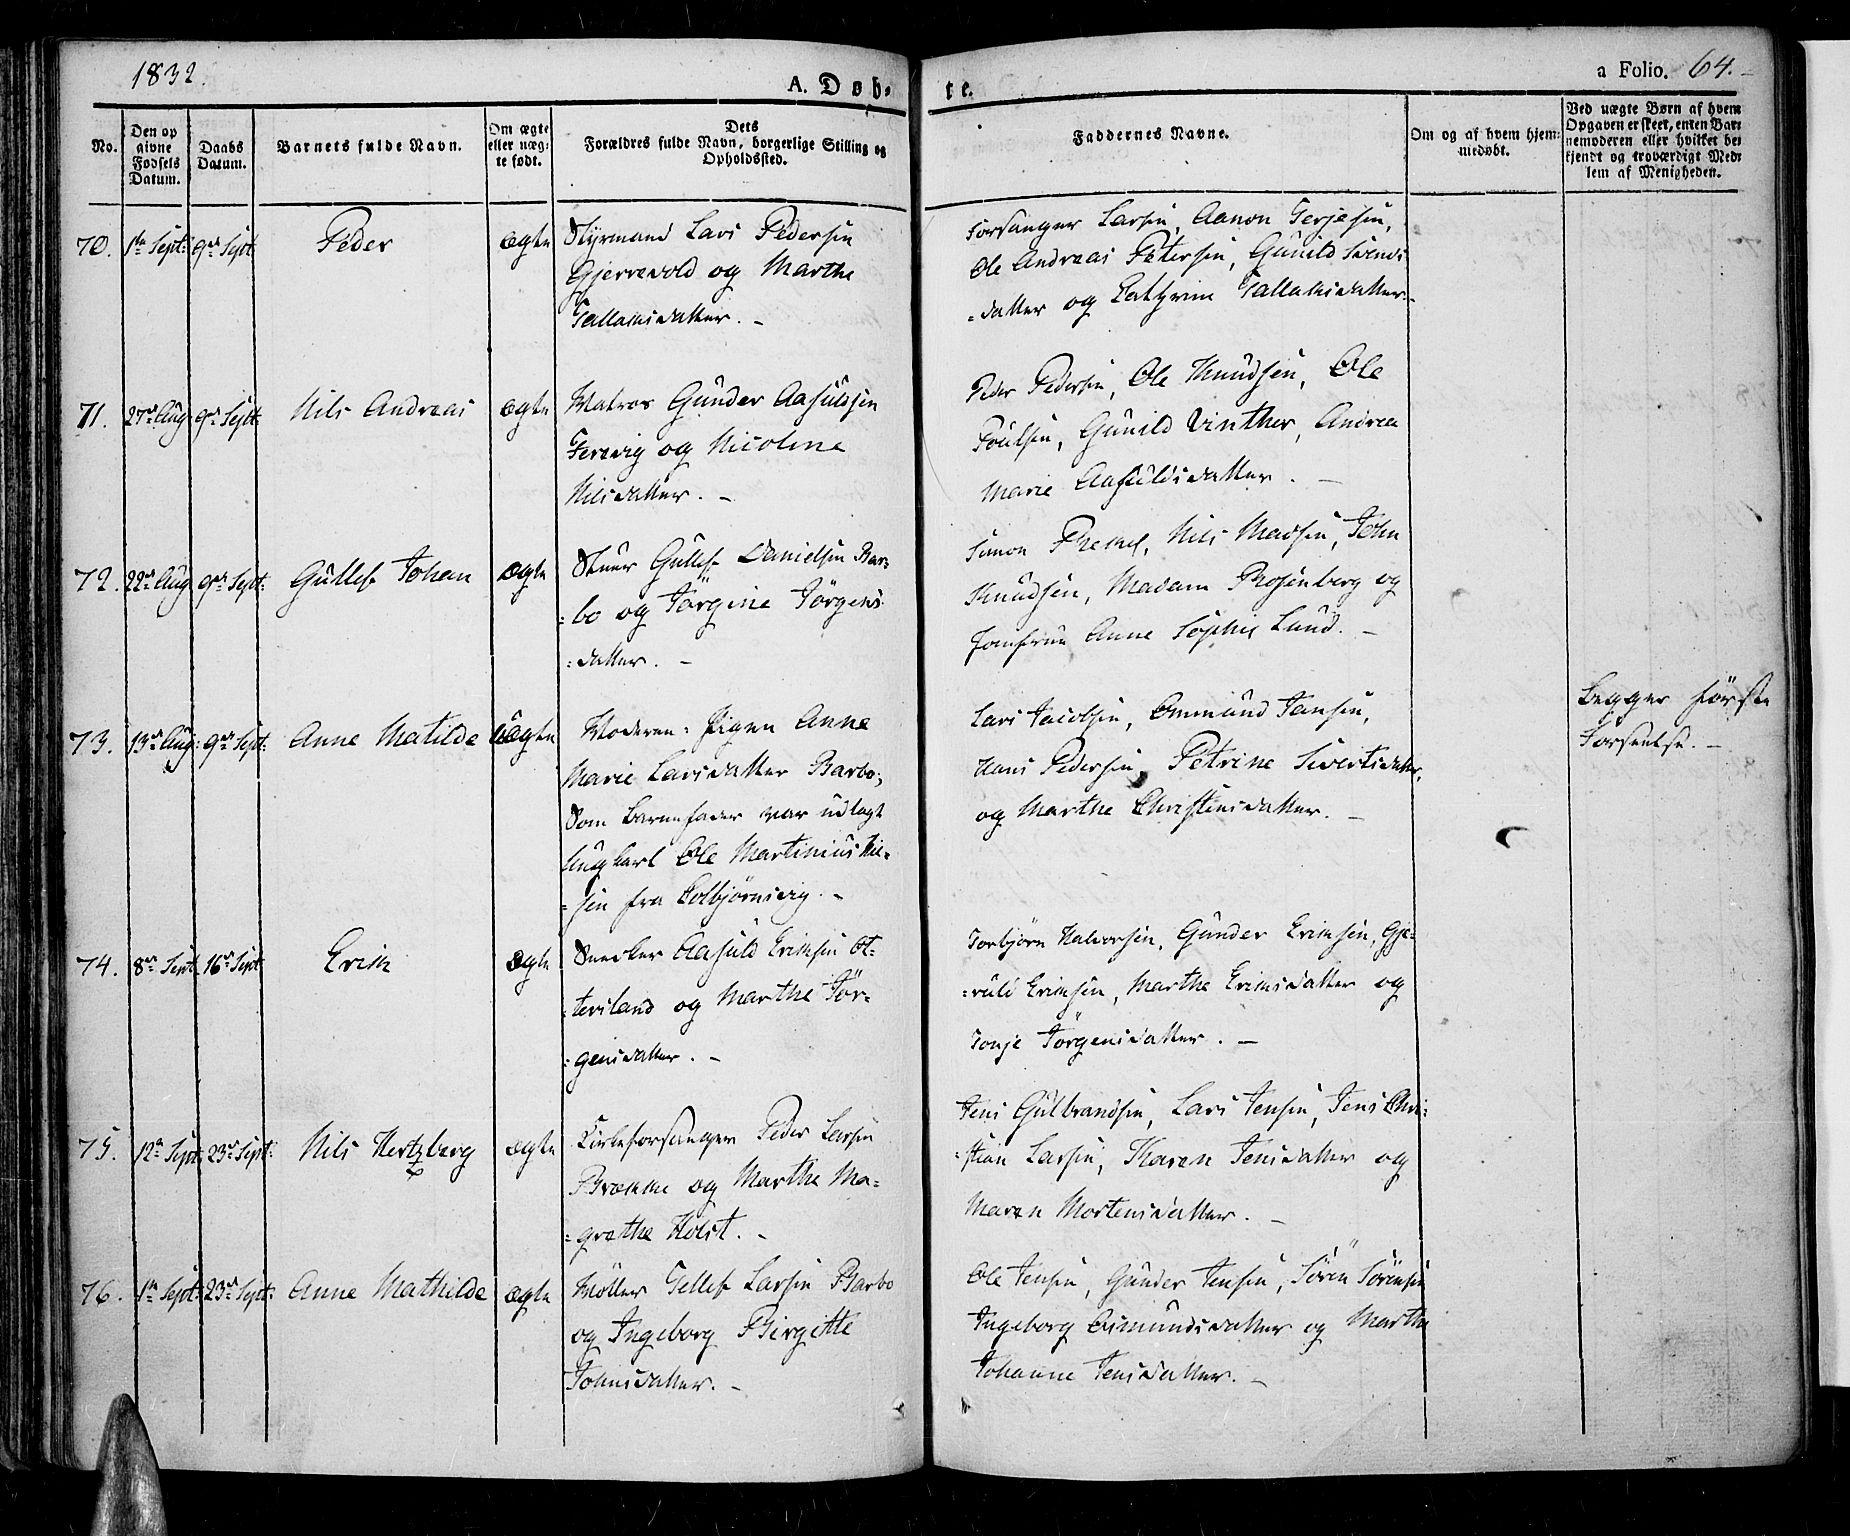 1832.
A. Døb-
te.
a Folio. 64.
No.
Den op
givne
Fødsels
Datum.
Daabs
Datum.
Barnets fulde Navn.
Om ægte
eller uæg-
te født.
Dets
Forældres fulde Navn, borgerlige Stilling og
Opholdssted.
Faddernes Navne.
Om og af hvem hjem-
medøbt.
Ved uægte Børn af hvem
Opgaven er skeet, enten Bar-
nemoderen eller hvilket be-
kjendt og troværdigt Med-
lem af Menigheden.
70. 1ste Sept: 9de Sept Peder ægte
Styrmand Lars Pedersen
Gjerrevold og Marthe
Tallaksdatter. -
Forsanger Larsen, Aanon Terjesen,
Ole Andreas Petersen, Gunild Svends
=datter og Cathrine Tallaksdatter. -
71. 27de Aug 9de Sept. Nils Andreas ægte
Matros Gunder Aasuldsen
Fervig og Nicoline
Nilsdatter. -
Peder Pedersen, Ole Knudsen, Ole
Poulsen, Gunild Vinther, Andrea
Marie Aasuldsdatter. -
72. 22de Aug 9de Sept: Gullef Johan ægte
Stuer Gullef Danielsen Bar-
=bo og Jørgine Jørgens
=datter. -
Simon Nils Madsen, John
Knudsen, Madam Rosenberg og
Jomfrue Anne Sophie Lund. -
73. 13de Aug: 9de Sept: Anne Matilde uægte
Moderen: Pigen Anne
Marie Larsdatter Barbo;
Som Barnefader var udlagt
Ungkarl Ole Martinius Nil-
=sen fra Colbjørnsvig. -
Lars Jacobsen, Ommund Jansen,
Hans Pedersen, Petrine Sivertsdatter,
og Marthe Christensdatter. -
Begges første
Forseelse. -
74. 8de Sept. 16de Sept Erik ægte
Snedker Aasuld Eriksen Ot-
=tersland og Marthe Jør-
=gensdatter. -
Torbjørn Halvorsen, Gunder Eriksen, Gje-
=ruld Eriksen, Marthe Eriksdatter og
Tonje Jørgensdatter. -
75. 12te Sept: 23de Sept: Nils Hertzberg ægte
Kirkeforsanger Peder Larsen
Brække og Marthe Ma-
=grethe Holst. -
Jens Gulbrandsen, Lars Jensen, Jens Chri-
=stian Larsen, Karen Jensdatter og
Maren Mortensdatter. -
76. 1ste Sept: 23de Sept: Anne Mathilde ægte
Møller Tellef Larsen Barbo
og Ingeborg Birgitte
Johnsdatter. -
Ole Jensen, Gunder Jensen, Søren Sørensen
Ingeborg Osmundsdatter og Marthe
Johanne Jensdatter. -